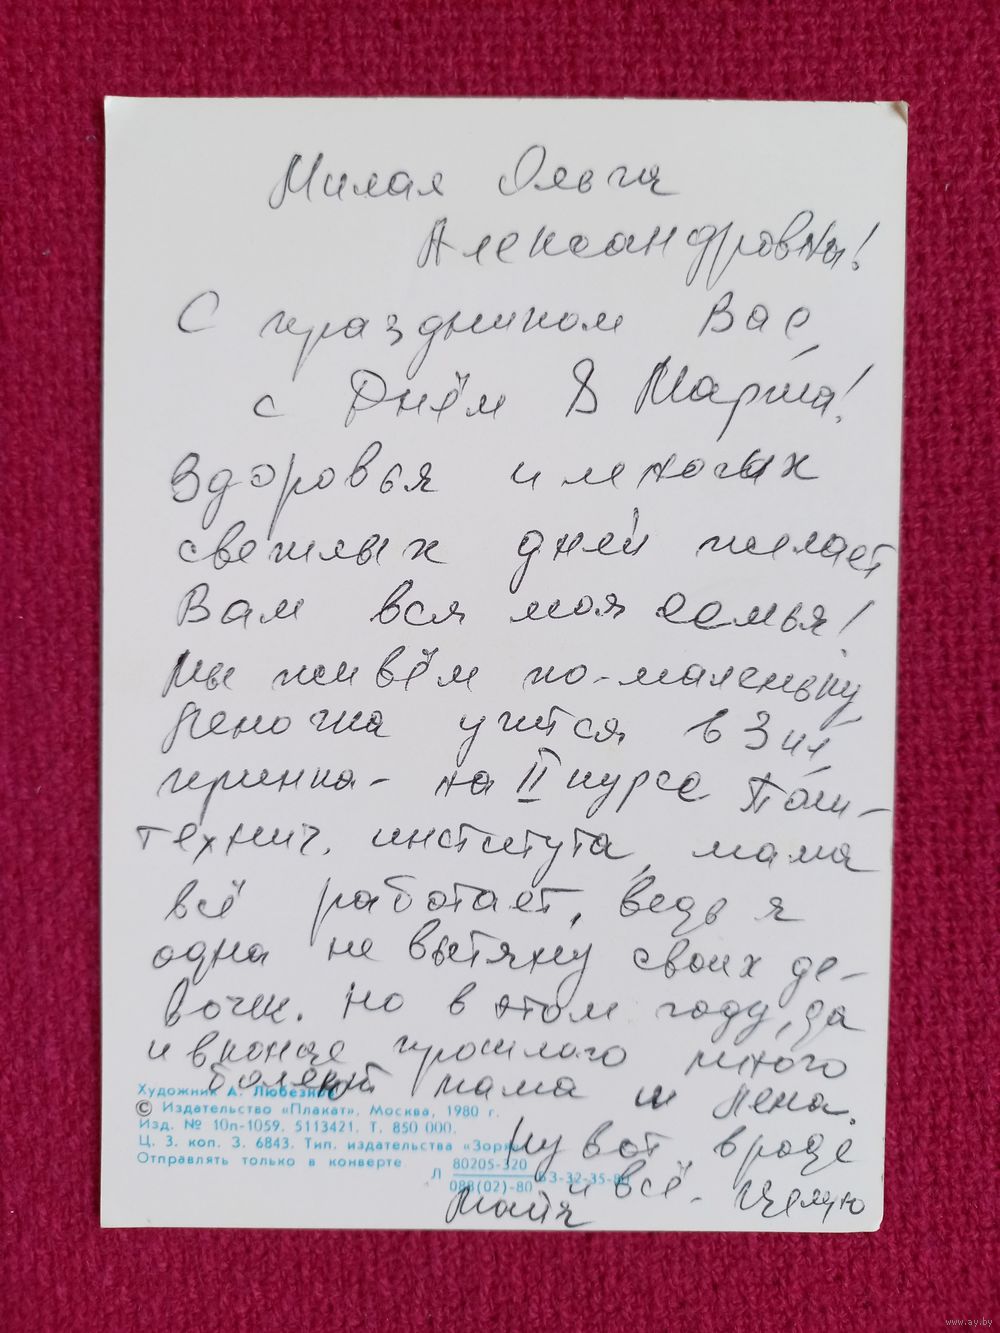 Милая Ольга
Александровна!
С праздником Вас
с Днём 8 Марта!
Здоровья и многих
светлых дней желает
Вам вся моя семья!
Мы живём по-маленьку
Леночка учится в 3 кл
Иринка - на II курсе Поли-
технич. института, мама
всё работает, ведь я
одна не вытяну своих де-
вочек. Но в этом году, да
и в конце прошлого много
болеют мама и Лена.
Ну вот, вроде
и всё. Целую
Майя
Художник А. Любезнов
© Издательство «Плакат». Москва, 1980 г.
Изд. № 10п-1059. 5113421. Т. 850 000.
Ц. 3. коп. З. 6843. Тип. издательства «Зоря»
Отправлять только в конверте
Л 80205-320
088(02)-80 БЗ-32-35-80
www.ay.by